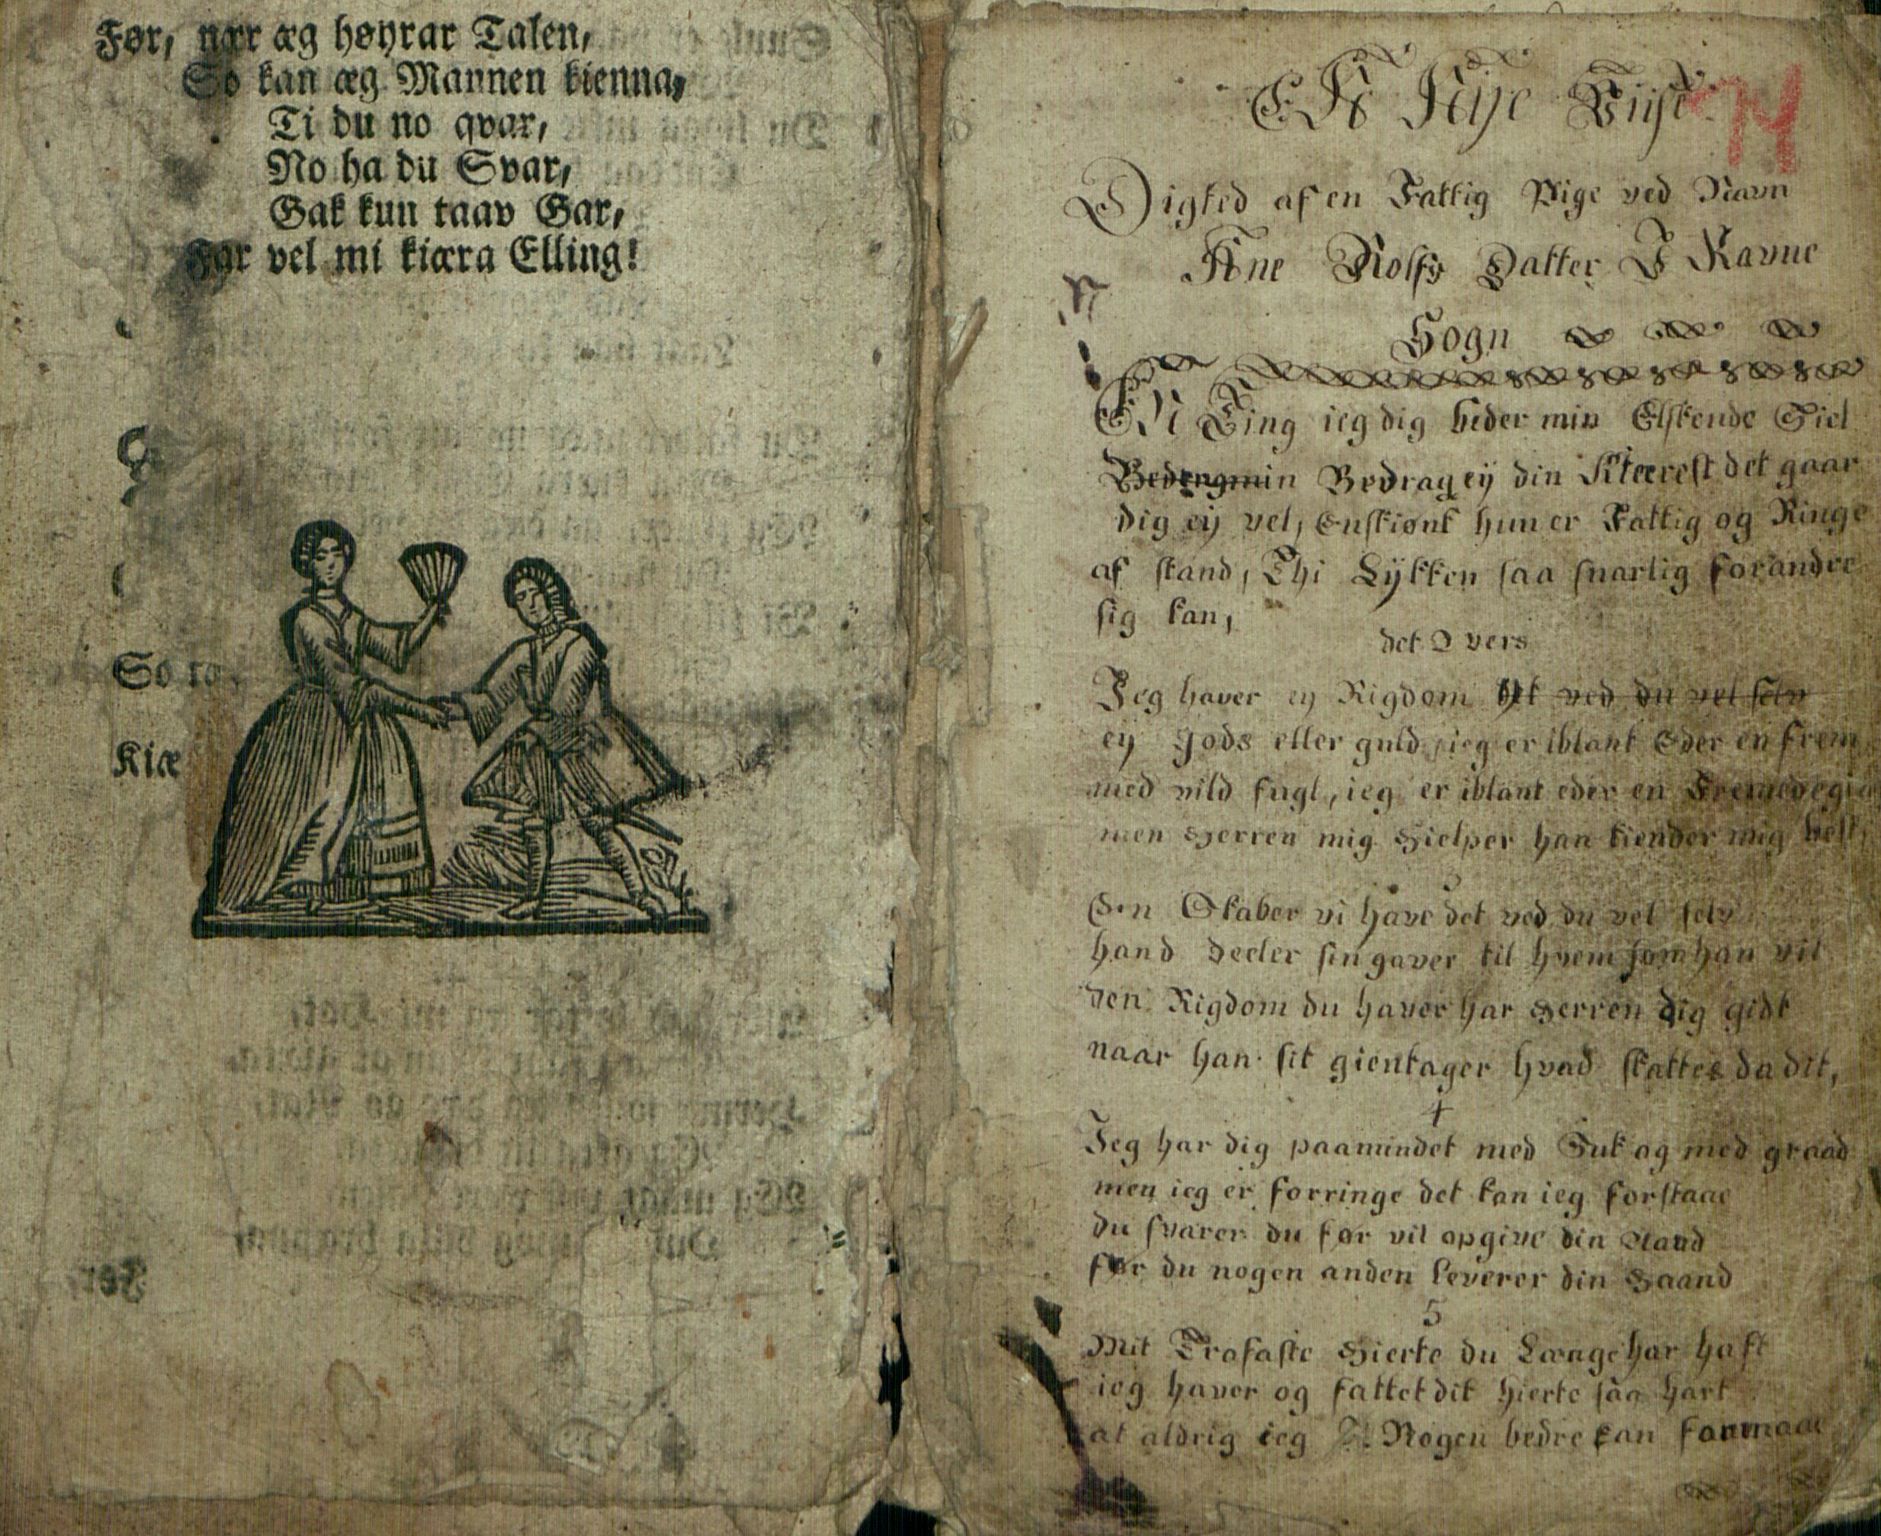 Før, nær æg høyrar Talen,
So kan æg Mannen kienna,
Ti du no qvar,
No ha du Svar,
Gak kun taav Gar,
Far vel mi kiæra Elling!
So
Kiæ
EN Nÿe Viise
Digted af en Fattig Pige ved Navn
Ane Rolfs Datter I Ravne
Sogn
EN Ting ieg dig beder min Elskende Siel
Bedrag ey din Kiereste det gaar
dig ey vel, Enskiønt hun er Fattig og Ringe
af stand, Thi Lykken saa snarlig forandre
sig kan,
det 2 vers
Jeg haver ey Rigdom det ved du vel selv
ey gods eller guld ieg er iblant Eder en frem
med vild fugl, ieg er iblant eder en
men Herren mig Hielper han kiender mig best
3
Een Skaber vi have det ved du vel selv
hand deeler sin gaver til hvem som han vil
den Rigdom du haver har Herren dig gidt
naar han sit gientager hvad skattes da dit,
4
Jeg har dig paamindet med Suk og med graad
men ieg er forringe det kan ieg forstaae
du svarer du før vil opgive din Aand
før du nogen anden leverer din Haand
5
Mit Trofaste Hierte du Længe har haft
ieg haver og fattet dit hierte saa hart
at aldrig ieg Nogen bedre kan formaae